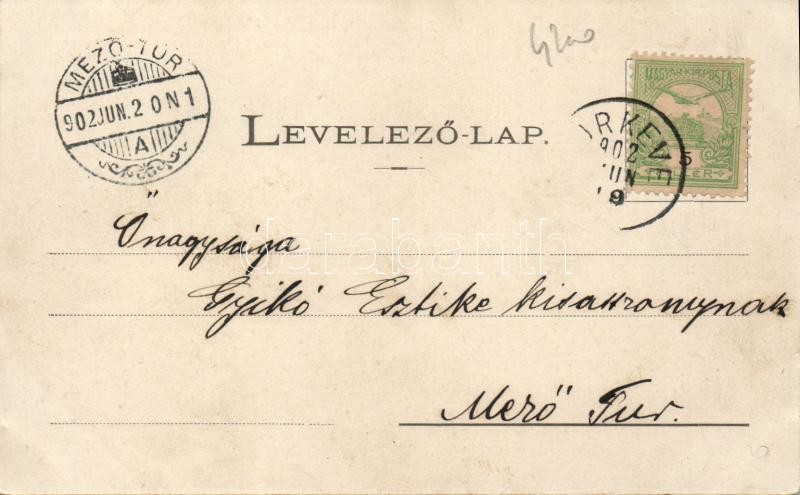 MEZŐ-TÚR
902 JUN. 20 N 1
A
LEVELEZŐ-LAP.
MAGYAR KIR. POSTA
5
RKEVE
902
JUN
19
darabanth
Őnagysága
Gyikó Esztike kisasszonynak
Mező Tur.